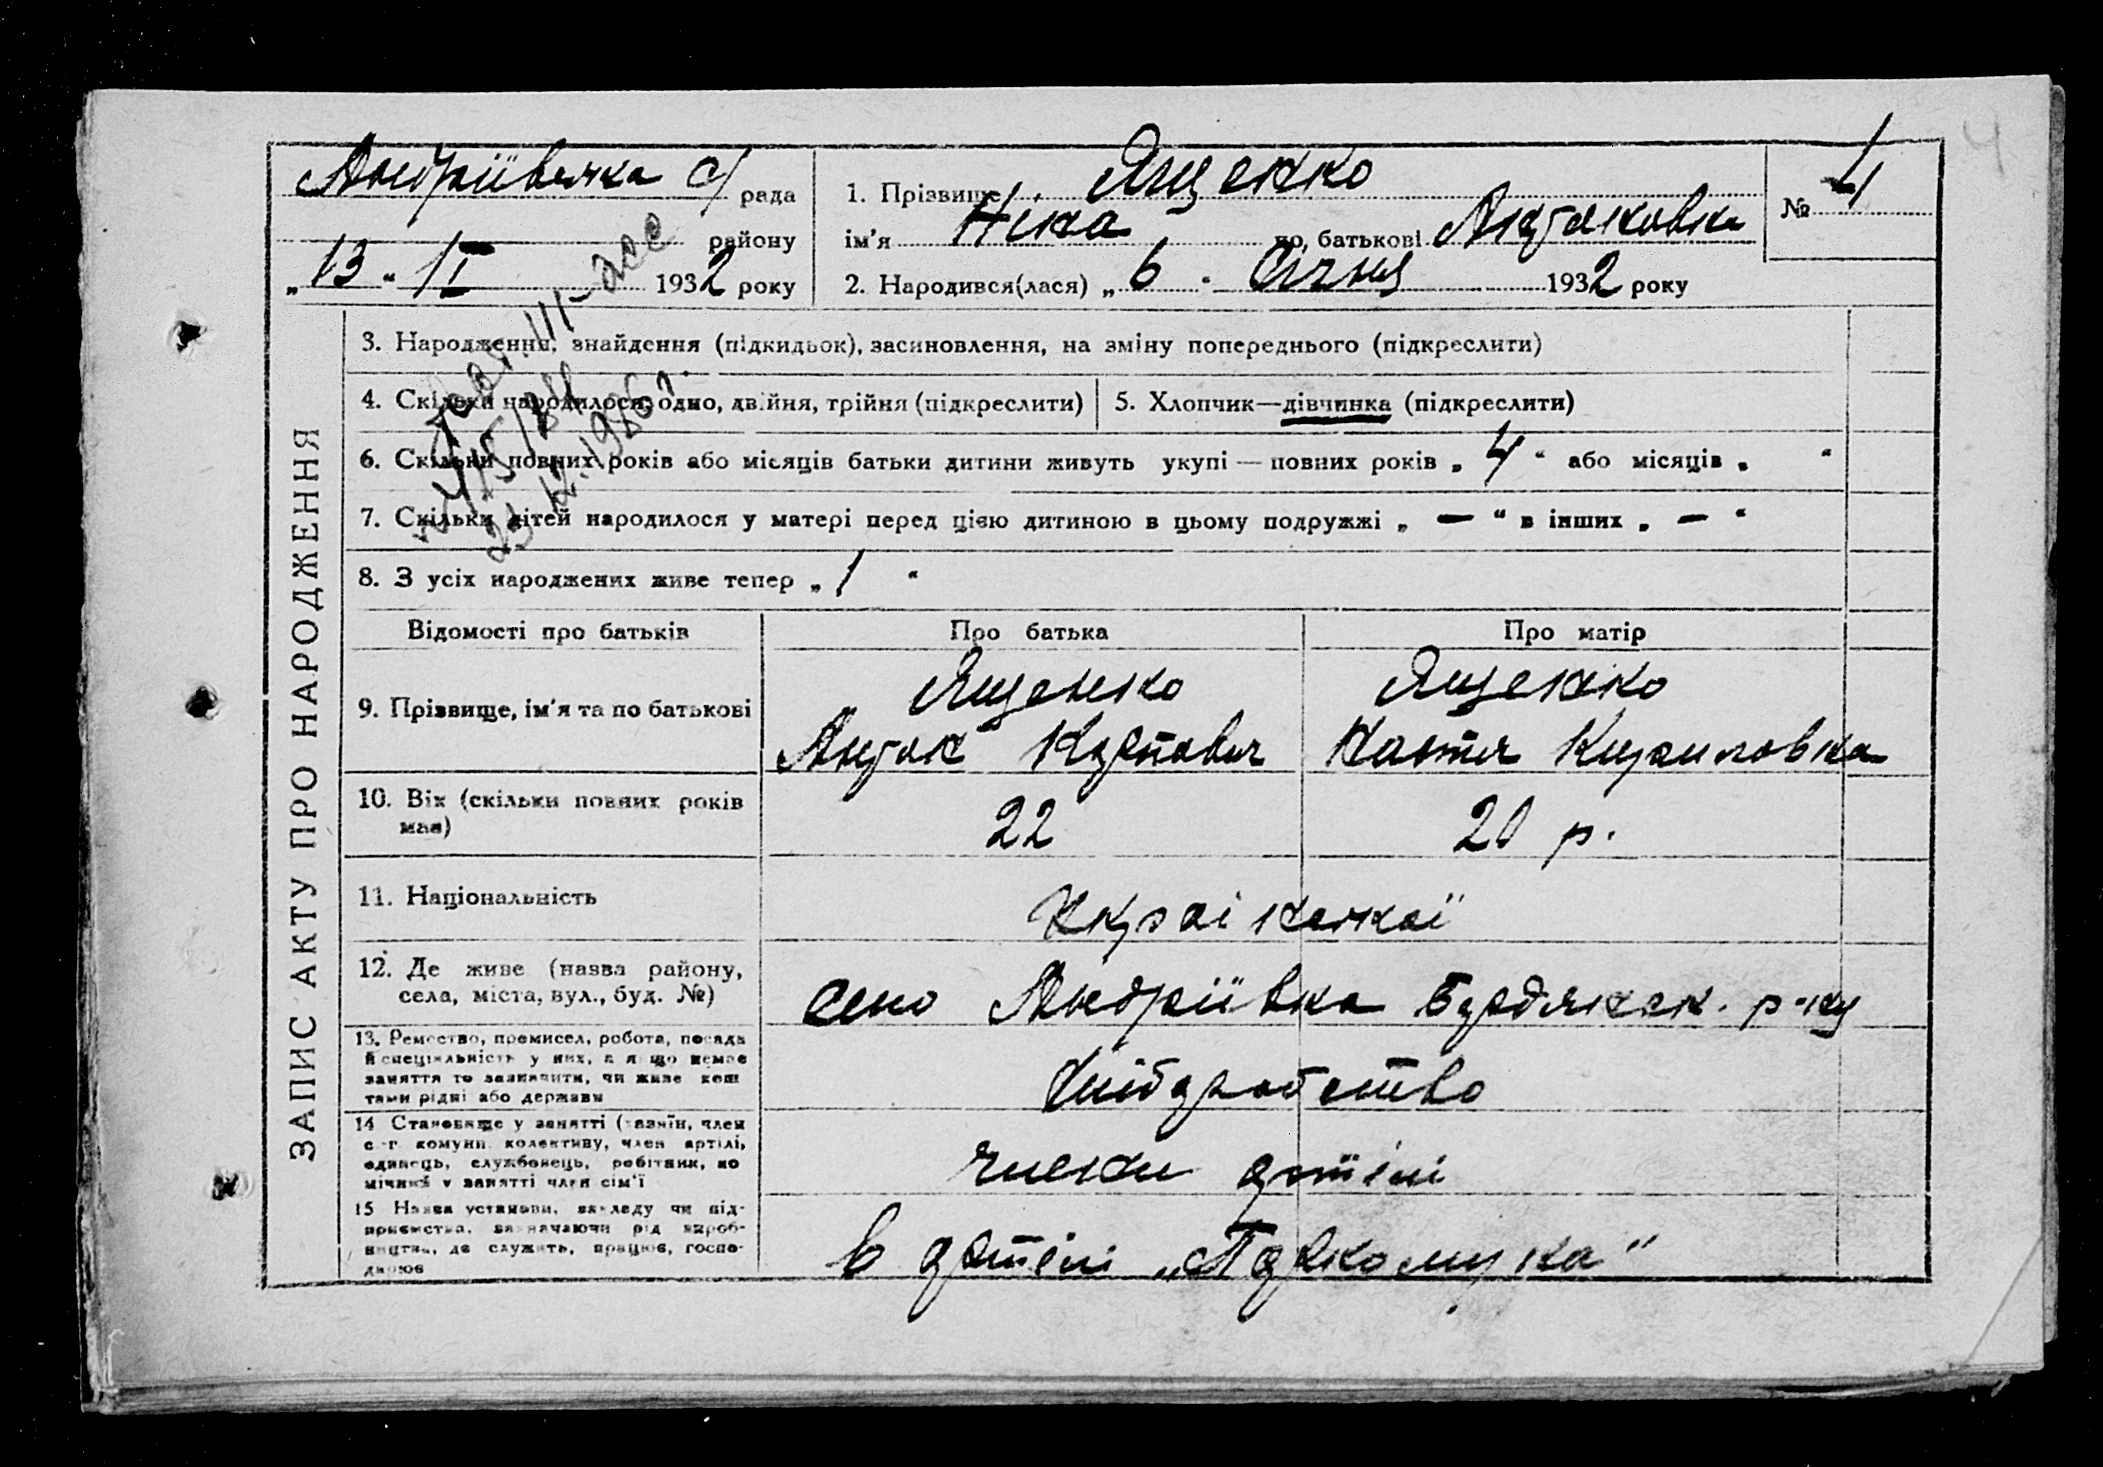 Андріївська с/рада
району
„13" II 1932 року
1. Прізвище Ященко
ім'я Ніна по батькові Антоновна
2. Народився(лася) „6" Січня 1932 року
№ 4
4
ЗАПИС АКТУ ПРО НАРОДЖЕННЯ
3. Народження, знайдення (підкидьок), засиновлення, на зміну попереднього (підкреслити)
4. Скільки народилося, одно, двійня, трійня (підкреслити)
5. Хлопчик—дівчинка (підкреслити)
6. Скільки повних років або місяців батьки дитини живуть укупі — повних років „4" або місяців „ "
7. Скільки дітей народилося у матері перед цією дитиною в цьому подружжі „—" в інших „—"
8. З усіх народжених живе тепер „1 "
Відомості про батьків
Про батька
Про матір
9. Прізвище, ім'я та по батькові
Ященко
Антон Карпович
Ященко
Настя Кириловна
10. Вік (скільки повних років
має)
22
20 р.
11. Національність
Української
12. Де живе (назва району,
села, міста, вул., буд. №)
село Андріївка Бердянськ. р-ну
13. Ремество, промисел, робота, посада
й спеціяльність у них, а якщо немає
заняття то зазначити, чи живе кош
тами рідні або держави
Хліборобство
14 Становище у занятті (хазяїн, член
с-г. комуни, колективу, член артілі,
одинець, службовець, робітник, по
мічний у занятті член сім'ї
члени артілі
15 Назва установи, закладу чи під-
приємства, зазначаючи рід вироб-
ництва, де служить, працює, госпо-
дарює
в артілі „Паркомуна"
23 12. 1986 р.